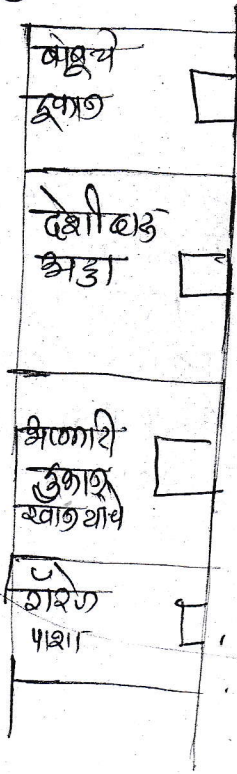 बांबूचे
दूकान
देशी दारू
अड्डा
दुकान
खान यांचे
गॅरेज
पाशा